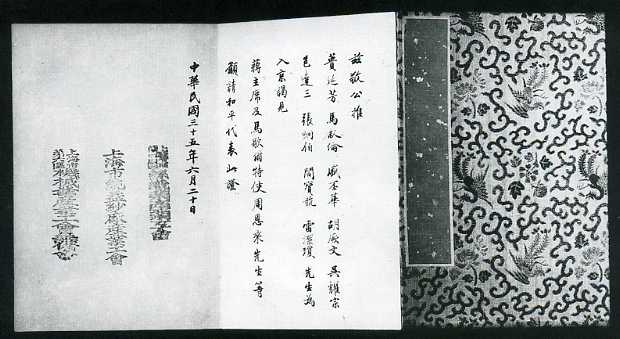 茲敬公推
蕢延芳 馬叙倫 盛丕華 胡厥文 吳耀宗
包達三 張絅伯 閻寶航 雷潔瓊 先生為
入京謁見
蔣主席及馬歇爾特使周恩來先生等
籲請和平代表此證
中華民國三十五年六月二十日
上海市 產業工會